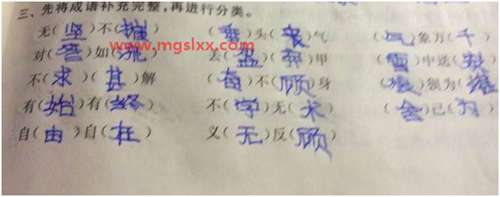 三、先将成语补充完整,再进行分类。
无(坚)不(摧) (垂)头(丧)气 (气)象万(千)
www.mgslxx.com
对(答)如(流) 丢(盔)弃甲 (雪)中送(炭)
不(求)(甚)解 (奋)不(顾)身 ( )狈为( )
有(始)有(终) 不(学)无(术) (舍)己(为)
自(由)自(在) 义(无)反(顾)